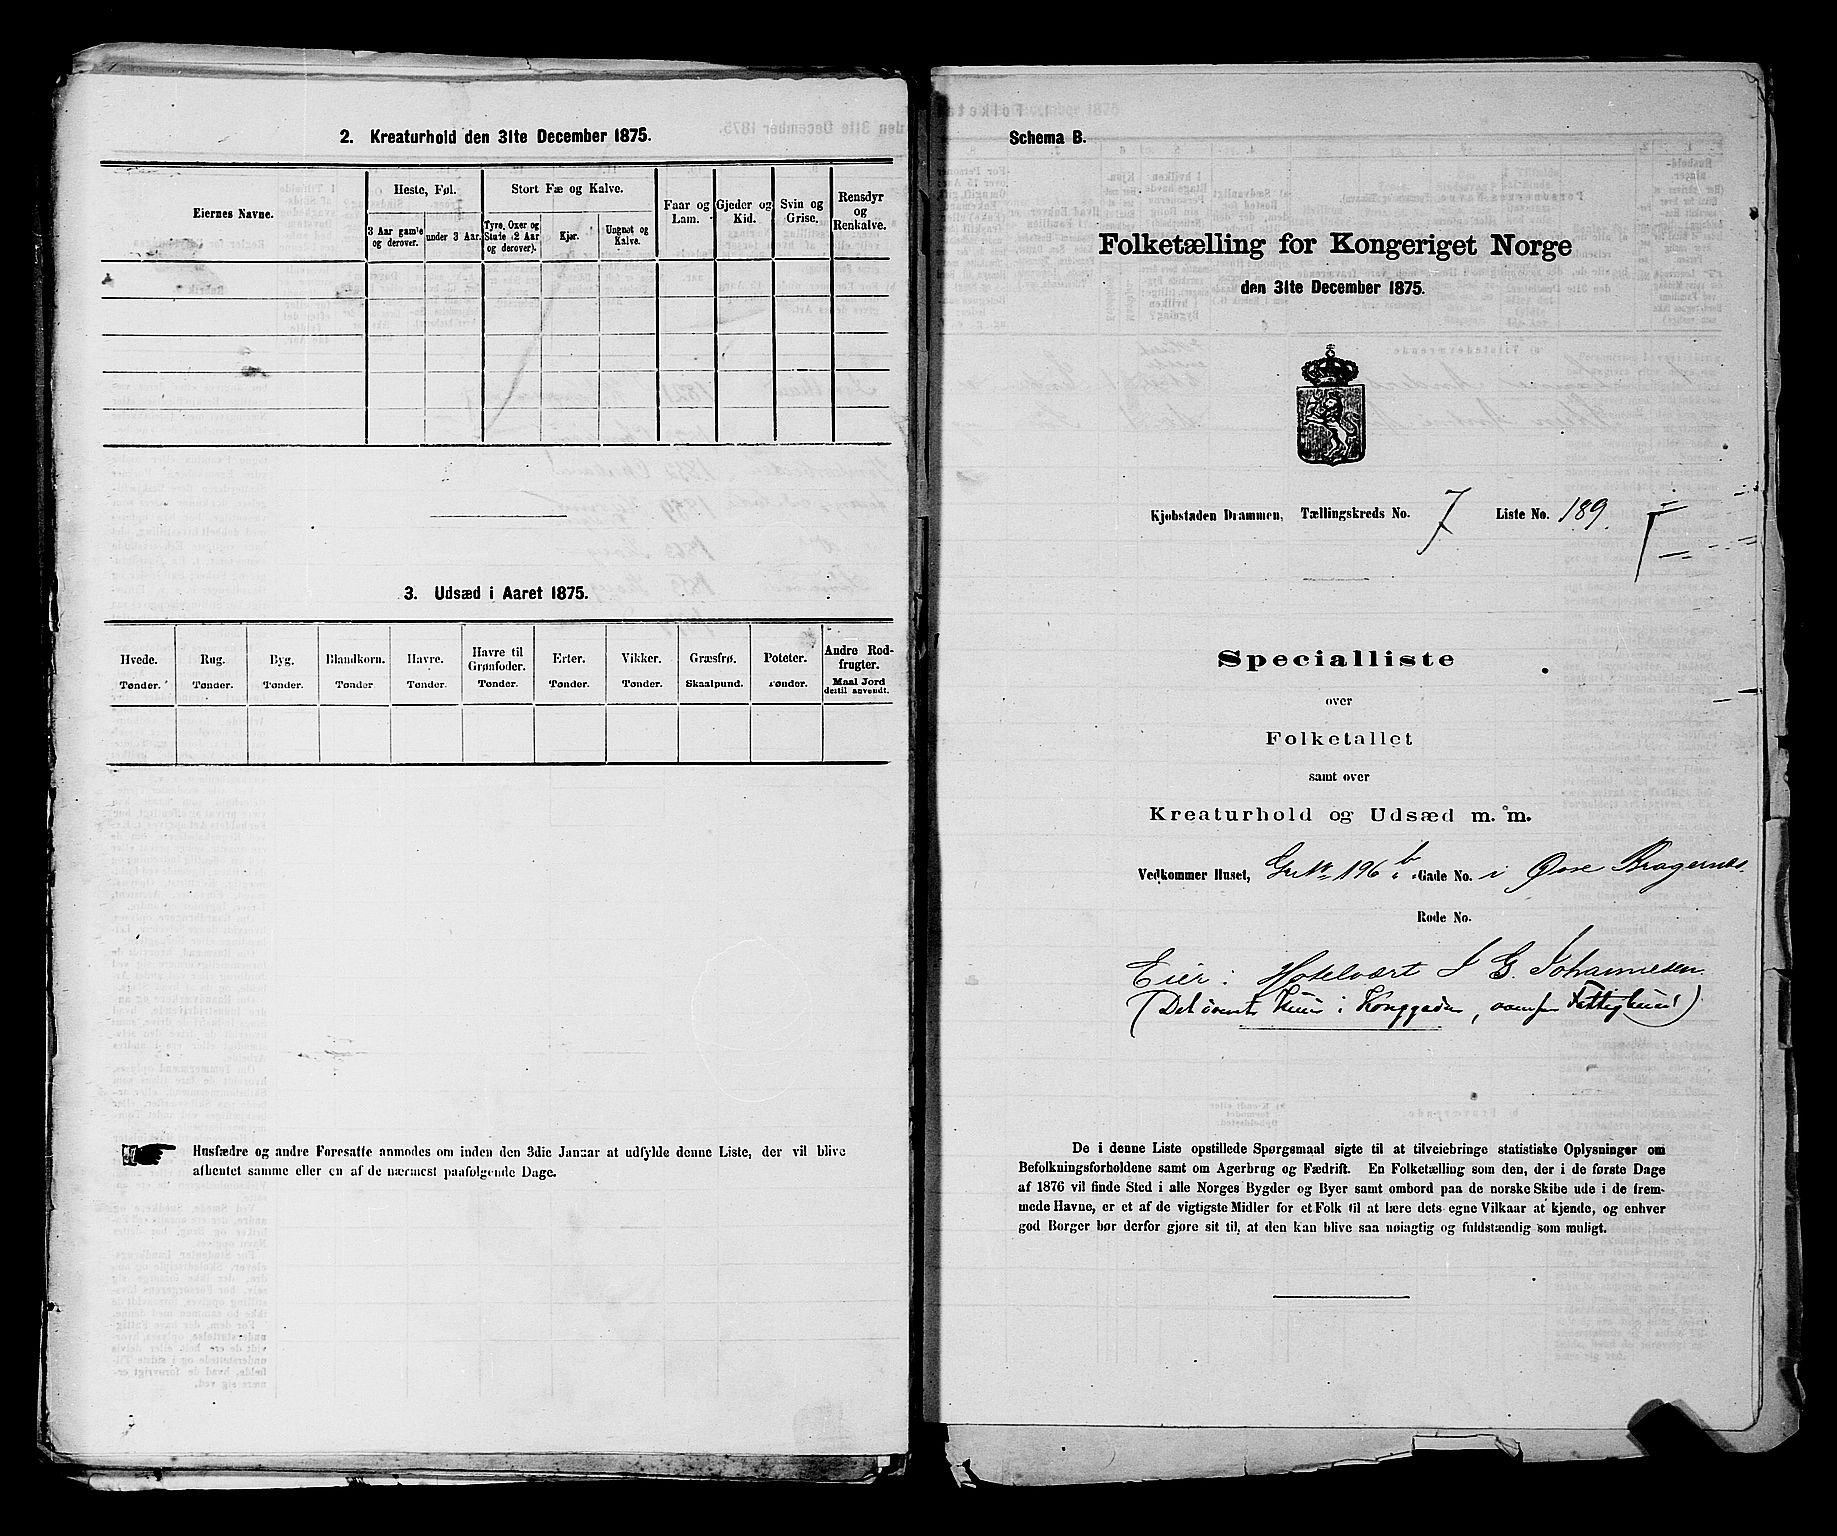 2. Kreaturhold den 31te December 1875.
Eiernes Navne.
Heste, Føl.
3 Aar gamle og derover.
under 3 Aar.
Stort Fæ og Kalve.
Tyre, Oxer og Stude (2 Aar og derover).
Kjør.
Ungnøt og Kalve.
Faar og Lam.
Gjeder og Kid.
Svin og Grise.
Rensdyr og Renkalve.
3. Udsæd i Aaret 1875.
Hvede. Tønder.
Rug. Tønder.
Byg. Tønder.
Blandkorn. Tønder
Havre. Tønder.
Havre til Grønfoder. Tønder.
Erter. Tønder.
Vikker. Tønder.
Græsfrø. Skaalpund.
Poteter. Tønder.
Andre Rodfrugter. Maal Jord dertil anvendt.
Husfædre og andre Foresatte anmodes om inden den 3die Januar at udfylde denne Liste, der vil blive
afhentet samme eller en af de nærmest paafølgende Dage.
Schema B.
Folketælling for Kongeriget Norge
den 31te December 1875.
Kjøbstaden Drammen, Tællingskreds No. 7 Liste No. 189.
Specialliste
over
Folketallet
samt over
Kreaturhold og Udsæd m. m.
Vedkommer Huset, Gr N 196 b Gade No. i Øvre Bragernes.
Rode No.
Eier: Hotelvært J G. Johannesen
(Det Huus i Konggaden, Fattighuus)
De i denne Liste opstillede Spørgsmaal sigte til at tilveiebringe statistiske Oplysninger om
Befolkningsforholdene samt om Agerbrug og Fædrift. En Folketælling som den, der i de første Dage
af 1876 vil finde Sted i alle Norges Bygder og Byer samt ombord paa de norske Skibe ude i de frem-
mede Havne, er et af de vigtigste Midler for et Folk til at lære dets egne Vilkaar at kjende, og enhver
god Borger bør derfor gjøre sit til, at den kan blive saa nøiagtig og fuldstændig som muligt.